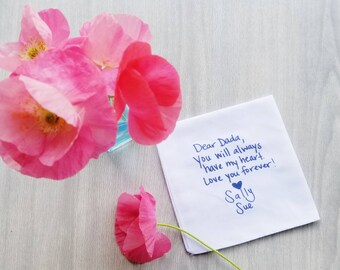 Dear Dada,
You will always
have my heart
Love you forever!
♥
Sally
Sue